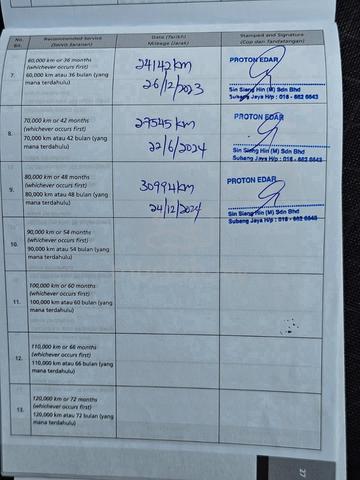 No.
Bil.
Recommended Service
(Servis Saranan)
Date (Tarikh)
Mileage (Jarak)
Stamped and Signature
(Cop dan Tandatangan)
7.
60,000 km or 36 months
(whichever occurs first)
60,000 km atau 36 bulan (yang
mana terdahulu)
24142km
26/12/2023
PROTON EDAR
Sin Siang Hin (M) Sdn Bhd
Subang Jaya H/p : 016 - 662 6643
8.
70,000 km or 42 months
(whichever occurs first)
70,000 km atau 42 bulan (yang
mana terdahulu)
27545km
22/6/2024
PROTON EDAR
Sin Siang Hin (M) Sdn Bhd
Subang Jaya H/p : 016 - 662 6643
9.
80,000 km or 48 months
(whichever occurs first)
80,000 km atau 48 bulan (yang
mana terdahulu)
30994km
24/12/2024
PROTON EDAR
Sin Siang Hin (M) Sdn Bhd
Subang Jaya H/p : 016 - 662 6643
10.
90,000 km or 54 months
(whichever occurs first)
90,000 km atau 54 bulan (yang
mana terdahulu)
11.
100,000 km or 60 months
(whichever occurs first)
100,000 km atau 60 bulan (yang
mana terdahulu)
12.
110,000 km or 66 months
(whichever occurs first)
110,000 km atau 66 bulan (yang
mana terdahulu)
13.
120,000 km or 72 months
(whichever occurs first)
120,000 km atau 72 bulan (yang
mana terdahulu)
27